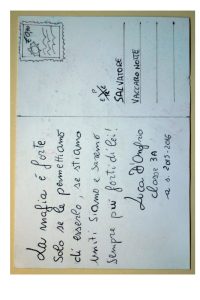 La mafia è forte
Solo se le permettiamo
di esserlo, se stiamo
uniti siamo e saremo
sempre più forti di lei!
Luca
classe 3A
a.s. 2015-2016
SALVATORE
VACCARO NOTTE